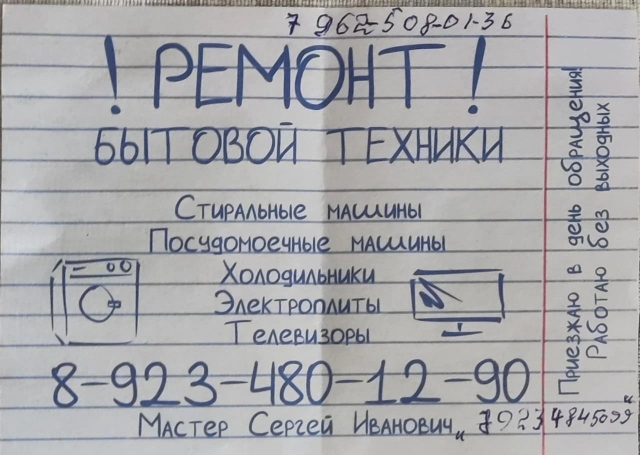 7 962-508-01-36
! РЕМОНТ !
БЫТОВОЙ ТЕХНИКИ
Стиральные машины
Посудомоечные машины
Холодильники
Электроплиты
Телевизоры
8-923-480-12-90
Мастер Сергей Иванович
„79234845099"
Приезжаю в день обращения!
Работаю без выходных